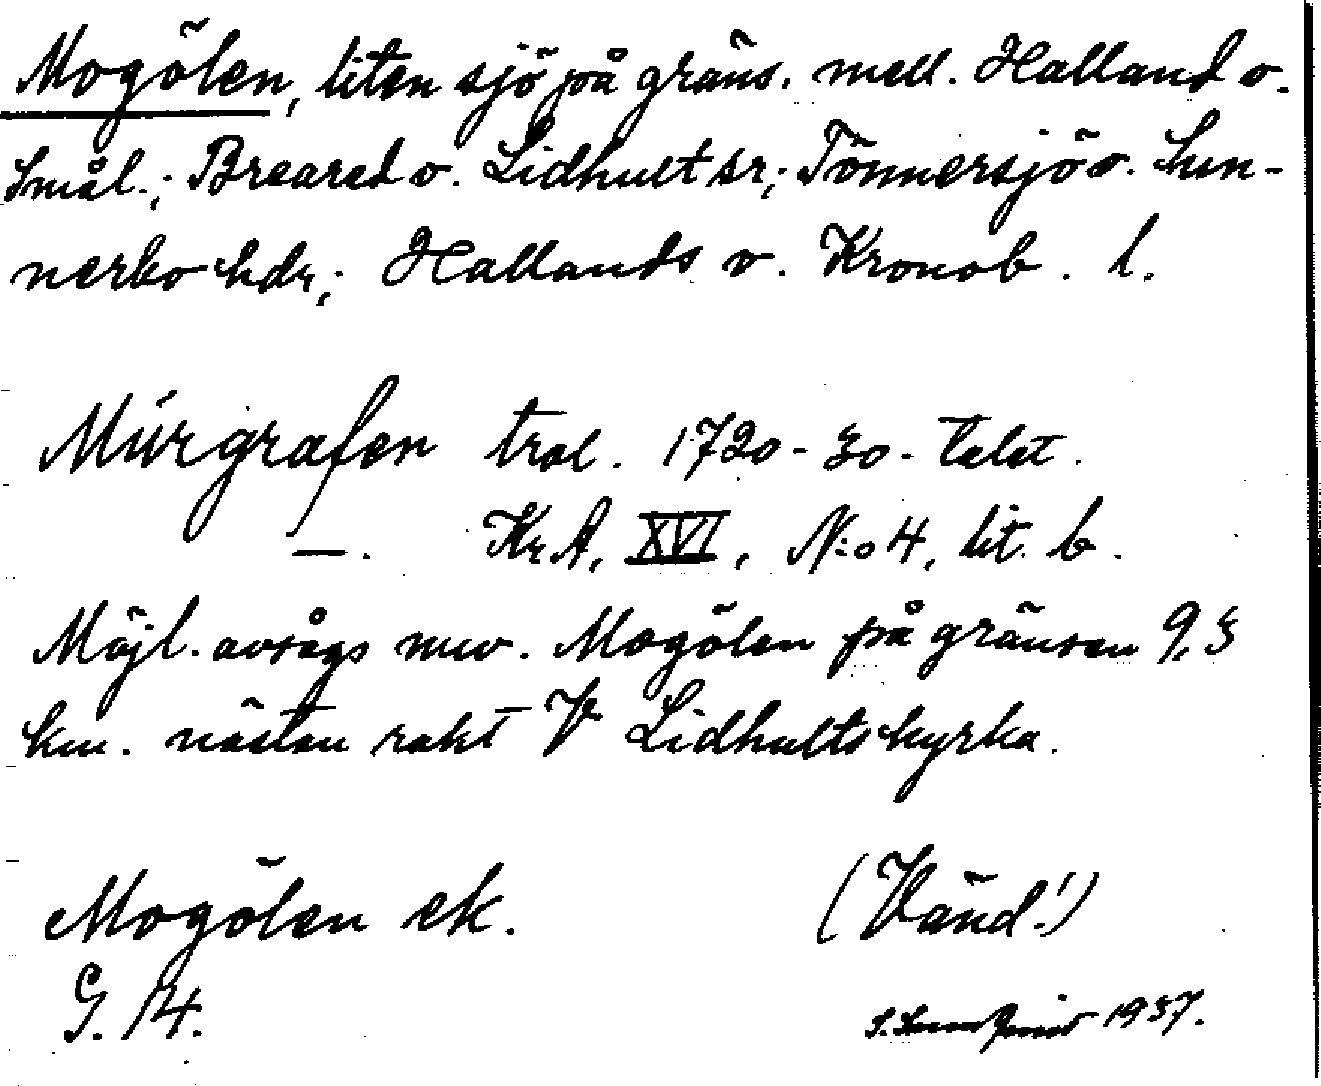 Mogölen, liten sjö på gräns. mell. Halland o.
Smål.; Breared o. Lidhult sr; Tönnersjö o. Sun-
nerbo hdr; Hallands o. Kronob. l.
Mürgrafen trol. 1720-30-talet.
—. Kr A, XVI, N:o 4, lit. b.
Möjl. avsågs nuv. Mogölen på gränsen 9,3
km. nästan rakt V Lidhults kyrka.
Mogölen ek. (Vänd!)
G. 14.
1937.